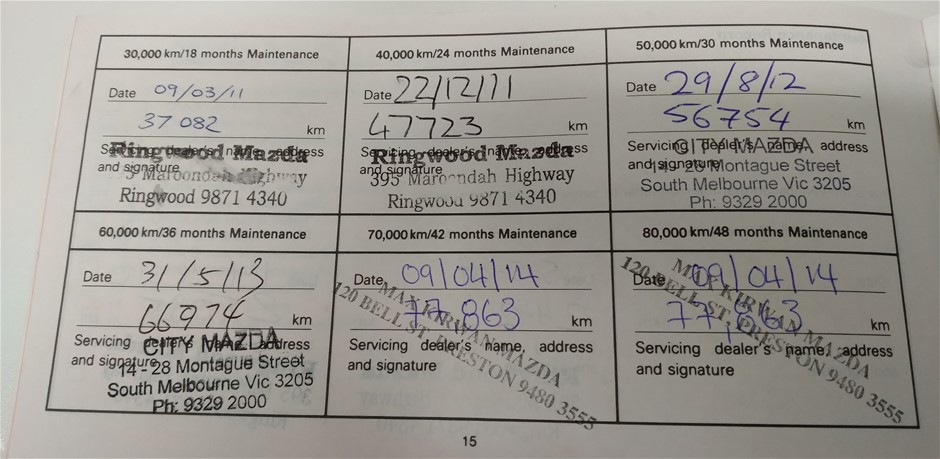 30,000 km/18 months Maintenance
Date 09/03/11
37 082 km
Servicing dealer's name, address
and signature
Ringwood Mazda
Maroondah Highway
Ringwood 9871 4340
40,000 km/24 months Maintenance
Date 22/12/11
47723 km
Servicing dealer's name, address
and signature
Ringwood Mazda
395 Maroondah Highway
Ringwood 9871 4340
50,000 km/30 months Maintenance
Date 29/8/12
56754 km
Servicing dealer's name, address
and signature
CITY MAZDA
14-28 Montague Street
South Melbourne Vic 3205
Ph: 9329 2000
60,000 km/36 months Maintenance
Date 31/5/13
66974 km
Servicing dealer's name, address
and signature
CITY MAZDA
14-28 Montague Street
South Melbourne Vic 3205
Ph: 9329 2000
70,000 km/42 months Maintenance
Date 09/04/14
77,863 km
Servicing dealer's name, address
and signature
MAX KIRWAN MAZDA
120 BELL ST, PRESTON 9480 3555
80,000 km/48 months Maintenance
Date 09/04/14
77,863 km
Servicing dealer's name, address
and signature
MAX KIRWAN MAZDA
120 BELL ST, PRESTON 9480 3555
15